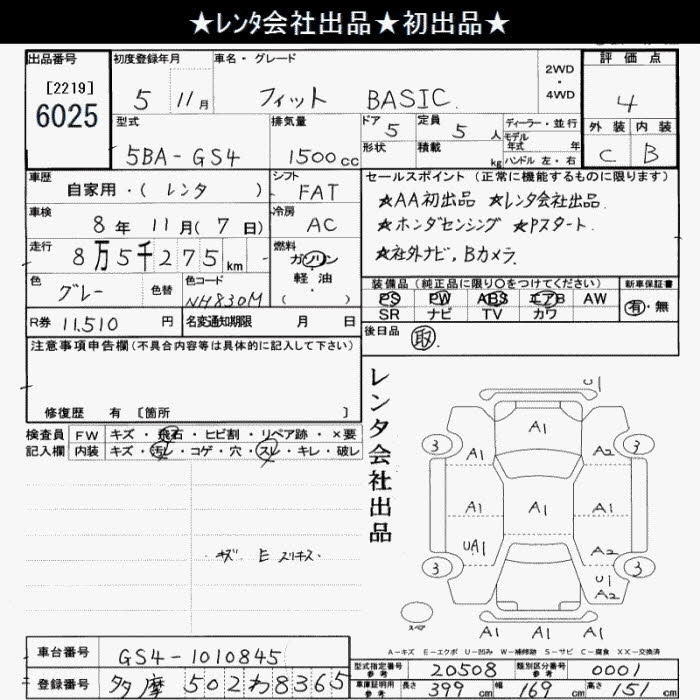 ★レンタ会社出品★初出品★
出品番号
[2219]
6025
初度登録年月
5 11 月
車名・グレード
フィット BASIC
2WD
・
4WD
評価点
4
外装 内装
C B
型式
5BA-GS4
排気量
1500cc
ドア 5
形状
定員 5 人
積載 kg
ディーラー・並行
モデル年式 年
ハンドル 左・右
車歴
自家用・( レンタ )
シフト
FAT
車検
8 年 11 月( 7 日)
冷房
AC
走行
8万5千275km
燃料
ガソリン
軽・油
( ・ )
色
グレー
色替
色コード
NH830M
R券 11,510 円
名変通知期限 月 日
セールスポイント(正常に機能するものに限ります)
★AA初出品 ★レンタ会社出品
★ホンダセンシング ★Pスタート
★社外ナビ,Bカメラ
装備品(純正品に限り〇をつけてください)
PS PW ABS エアB AW
SR ナビ TV カワ
新車保証書
有・無
後日品 取
注意事項申告欄(不具合内容等は具体的に記入して下さい)
修復歴 有 〔箇所 〕
検査員記入欄
FW キズ・飛石・ヒビ割・リペア跡・×要
内装 キズ・汚レ・コゲ・穴・スレ・キレ・破レ
キズ E スリキズ
レンタ会社出品
U1
A1
3 3
A1 A2
A1 A1 A1
UA1 A2
3 3
U1
A2
A1 A1 A1
スペア
A-キズ E-エクボ U-凹み W-補修跡 S-サビ C-腐食 XX-交換済
車台番号 GS4-1010845
登録番号 多摩502わ8365
型式指定番号 参考 20508
類別区分番号 参考 0001
車庫証明用 参考 長さ 399 cm 幅 169 cm 高さ 151 cm